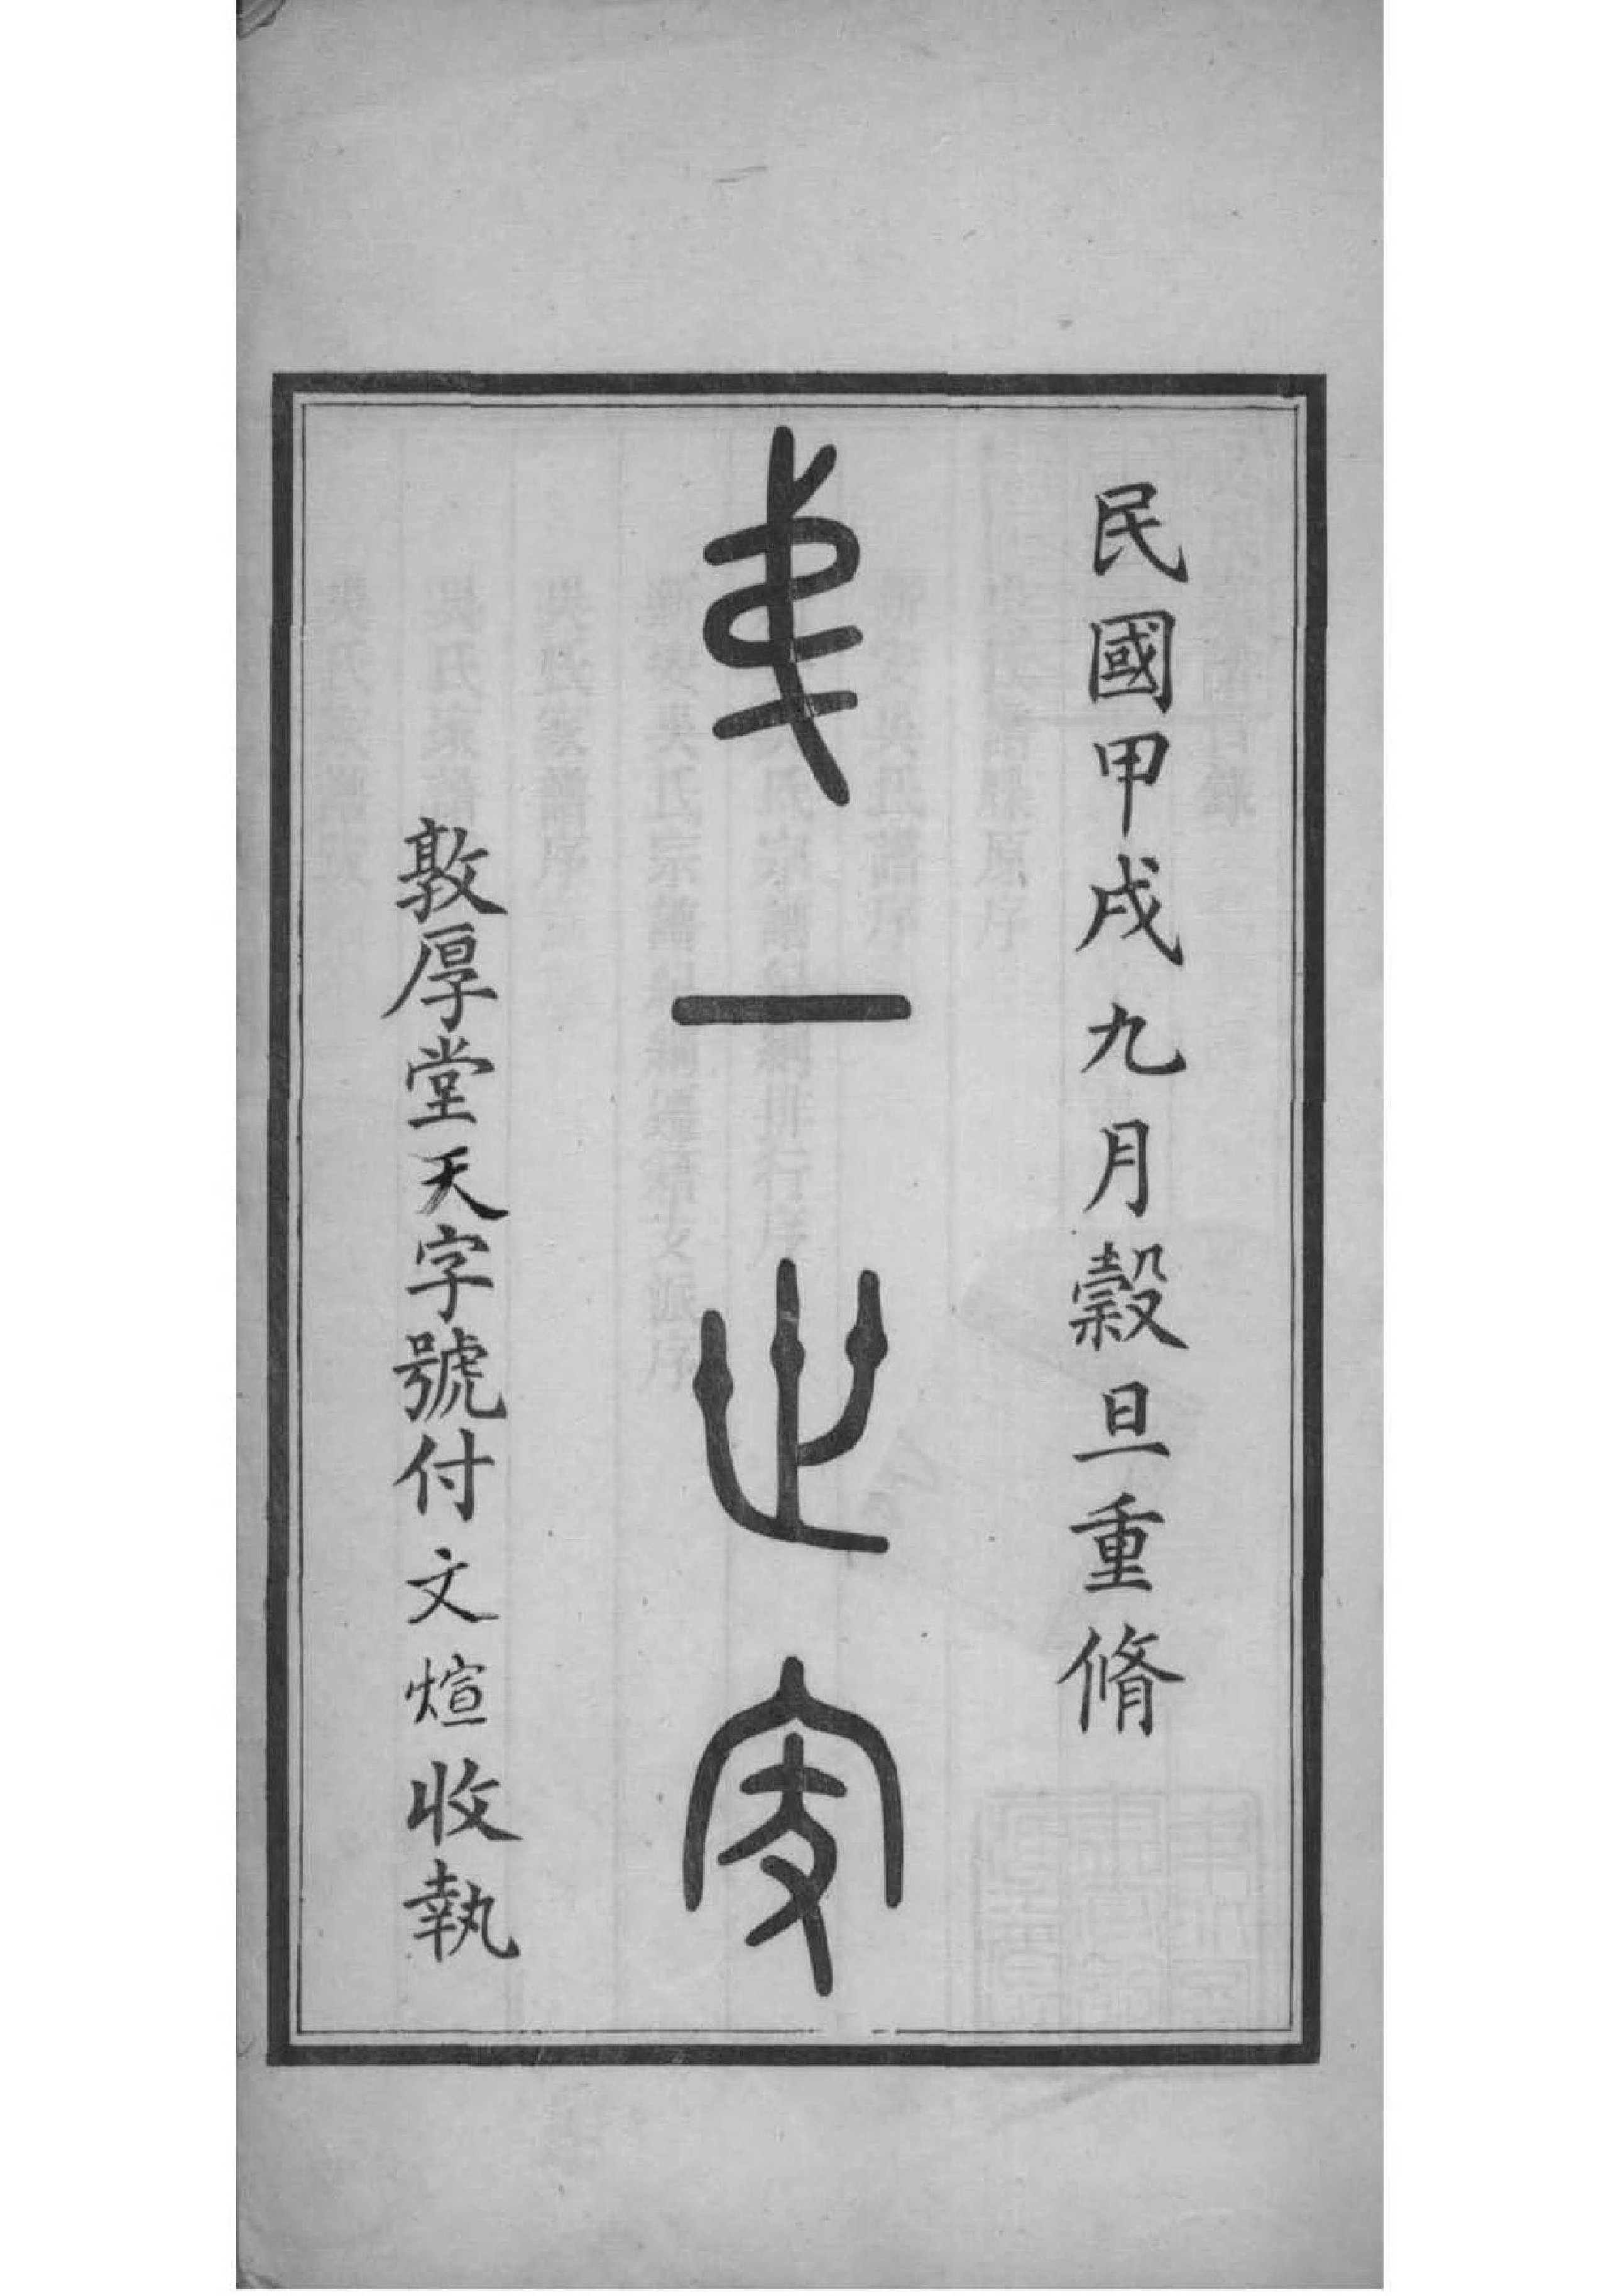 民國甲戌九月穀旦重脩
弟一世家
敦厚堂天字號付文煊收執